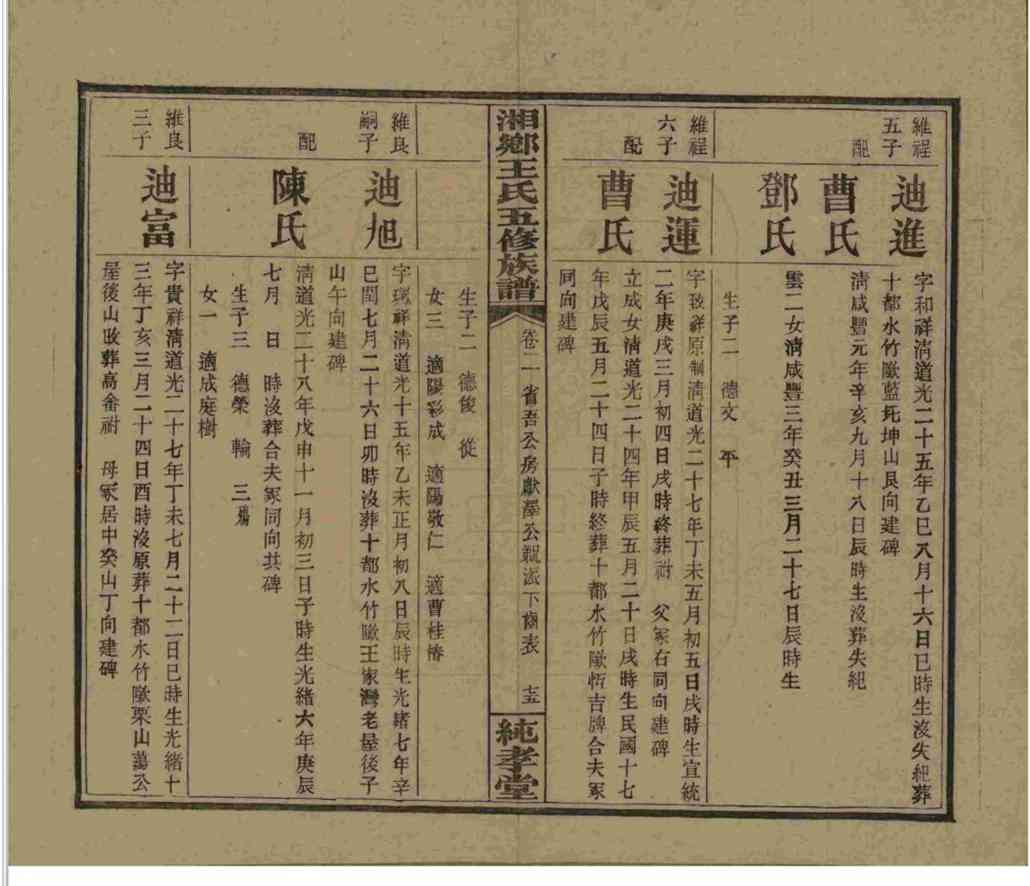 維程
五子
迪進
字和祥清道光二十五年乙巳八月十六日巳時生沒失紀葬
十都水竹墩藍坨坤山艮向建碑
配
曹氏
清咸豐元年辛亥九月十八日辰時生沒葬失紀
鄧氏
雲二女清咸豐三年癸丑三月二十七日辰時生
生子二 德文 平
維程
六子
迪運
字致祥原制清道光二十七年丁未五月初五日戌時生宣統
二年庚戌三月初四日戌時終葬祔 父冢右同向建碑
配
曹氏
立成女清道光二十四年甲辰五月二十日戌時生民國十七
年戊辰五月二十四日子時終葬十都水竹墩恆吉牌合夫冢
同向建碑
湘鄉王氏五修族譜
卷二 省吾公房獻墀公親派下齒表
純孝堂
生子二 德俊 從
女三 適陽彩成 適陽敬仁 適曹桂椿
維良
嗣子
迪旭
字瑞祥清道光十五年乙未正月初八日辰時生光緒七年辛
巳閏七月二十六日卯時沒葬十都水竹墩王家灣老屋後子
山午向建碑
配
陳氏
清道光二十八年戊申十一月初三日子時生光緒六年庚辰
七月 日 時沒葬合夫冢同向共碑
生子三 德榮 輪 三殤
女一 適成庭樹
維良
三子
迪富
字貴祥清道光二十七年丁未七月二十二日巳時生光緒十
三年丁亥三月二十四日酉時沒原葬十都水竹墩栗山蕩公
屋後山改葬高崙祔 母冢居中癸山丁向建碑